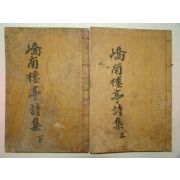 嶠南樓亭詩集 上
嶠南樓亭詩集 下